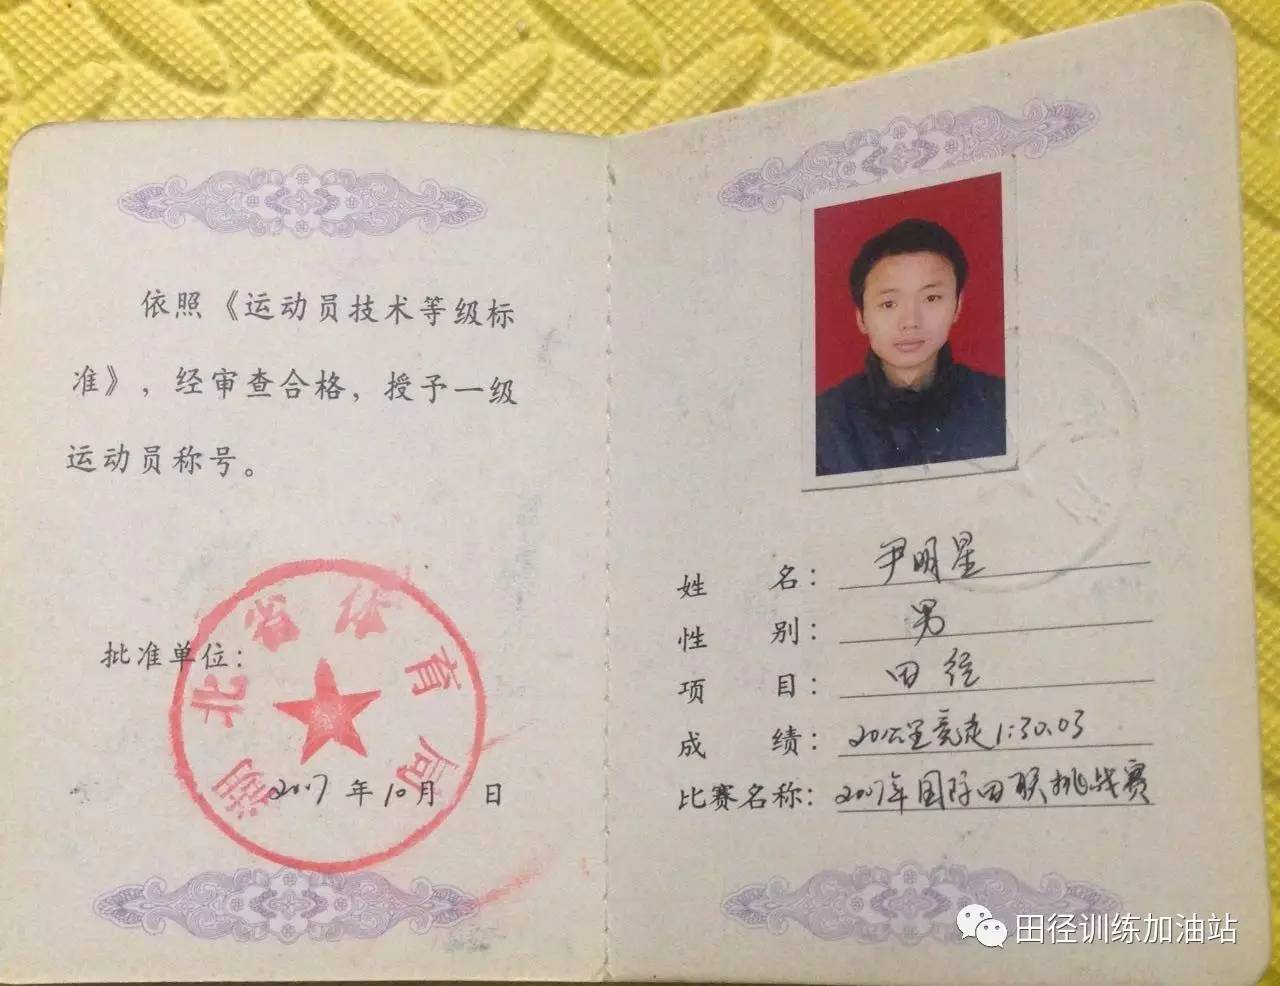 依照《运动员技术等级标
准》，经审查合格，授予一级
运动员称号。
批准单位：
湖北省体育局
2007年10月 日
姓 名：尹明星
性 别：男
项 目：田径
成 绩：20公里竞走1:30.03
比赛名称：2007年国际田联挑战赛
田径训练加油站